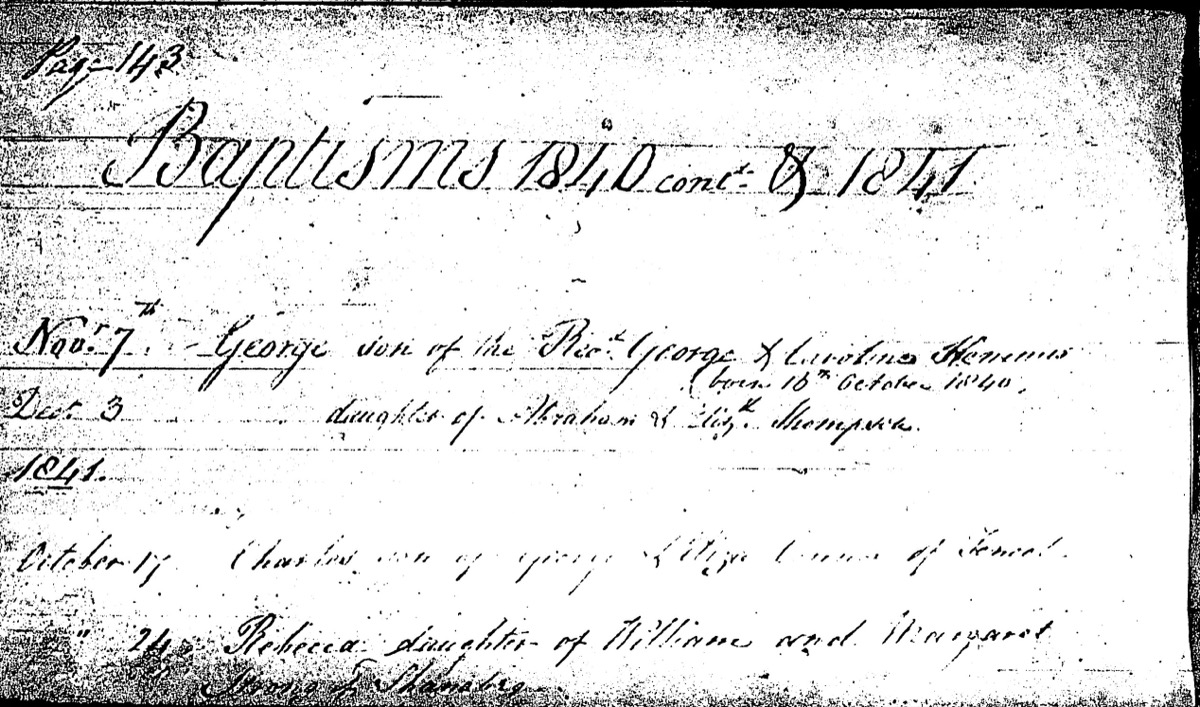 Page 143
Baptisms 1840 cont. & 1841
Novr. 7th - George son of the Revd. George & Caroline
(born 16th October 1840.
Decr. 3 daughter of Abraham & Elizth. Thompson.
1841.
October 17 Charles son of George & Eliza of
" 24 Rebecca daughter of William and Margaret
Strong of